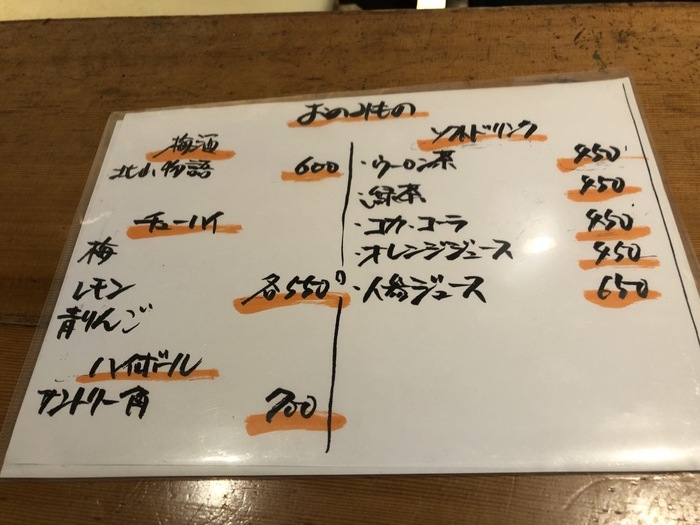 おのみもの
梅酒
北山物語 600
チューハイ
梅
レモン 各550円
青りんご
ハイボール
サントリー角 700
ソフトドリンク
・ウーロン茶 450
・緑茶 450
・コカ・コーラ 450
・オレンジジュース 450
・人参ジュース 650